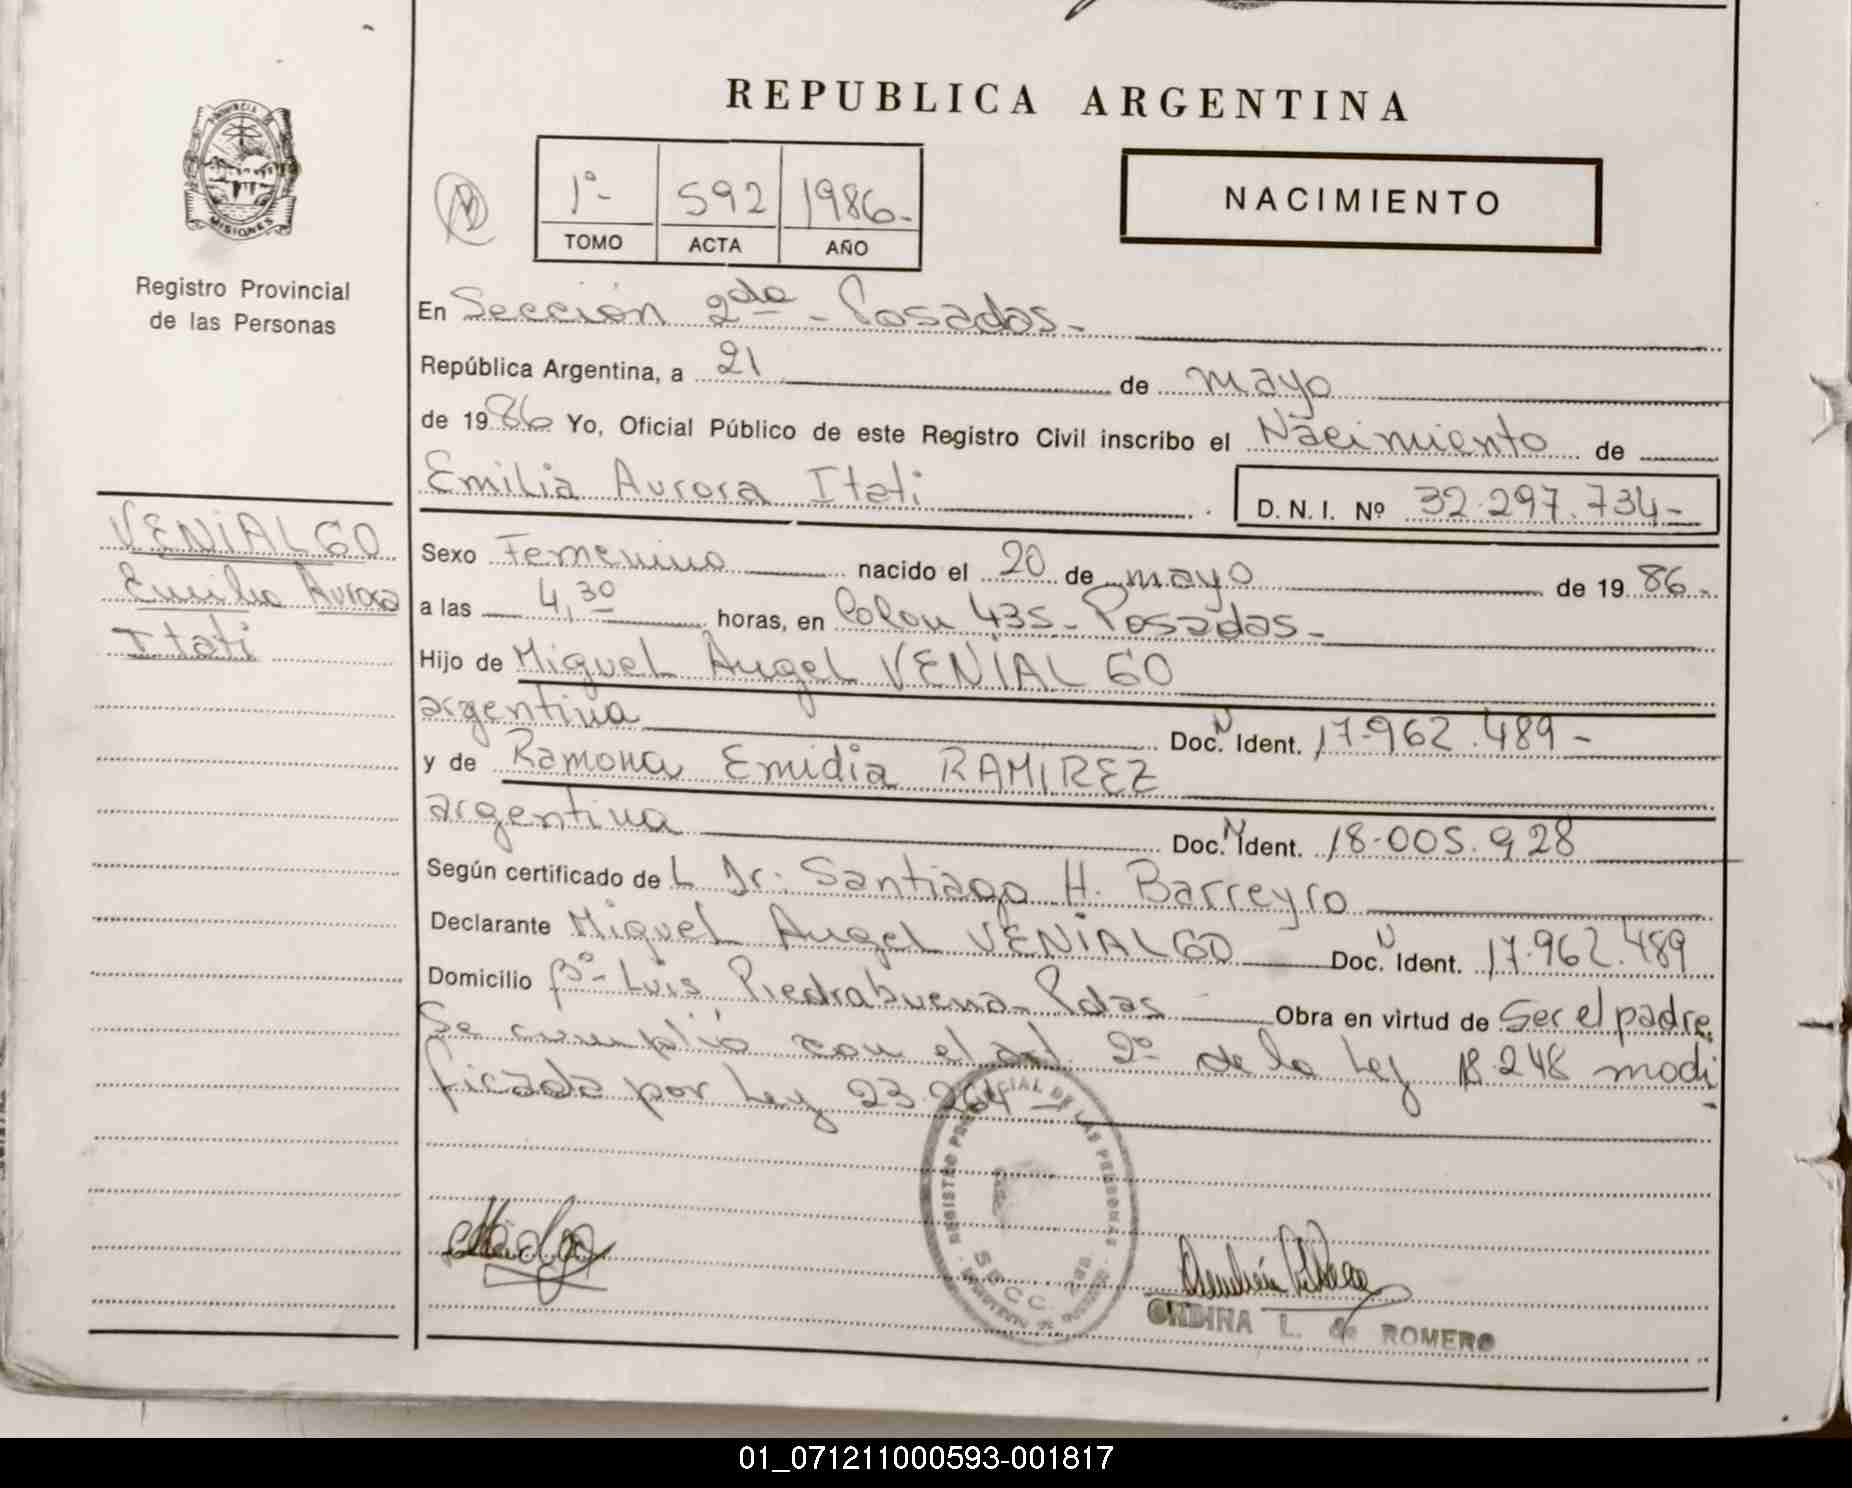 REPUBLICA ARGENTINA
PROVINCIA
MISIONES
Registro Provincial
de las Personas
1º- 592 1986-
TOMO ACTA AÑO
NACIMIENTO
En Sección 2da - Posadas-
República Argentina, a 21 de mayo
de 1986 Yo, Oficial Público de este Registro Civil inscribo el Nacimiento de
Emilia Aurora Itati D.N.I. Nº 32.297.734-
VENIALGO
Emilia Aurora
Itati
Sexo Femenino nacido el 20 de mayo de 1986-
a las 4,30 horas, en Colon 435- Posadas-
Hijo de Miguel Angel VENIALGO
argentina Doc. N Ident. 17.962.489-
y de Ramona Emidia RAMIREZ
argentina Doc. N Ident. 18.005.928
Según certificado de L Dr. Santiago H. Barreyro
Declarante Miguel Angel VENIALGO Doc. N Ident. 17.962.489
Domicilio Bº- Luis Piedrabuena- Pdas Obra en virtud de Ser el padre.
Se cumplió con el art 2º de la Ley 18.248 modi
ficada por Ley 23.264-
REGISTRO PROVINCIAL DE LAS PERSONAS
SECC. 2da
ONDINA L. de ROMERO
01_071211000593-001817